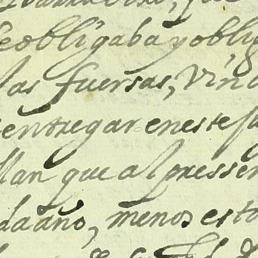 se obligaba y obli
las fuersas, vinc
entregar en este
llan que al pressen
da año, menos esto